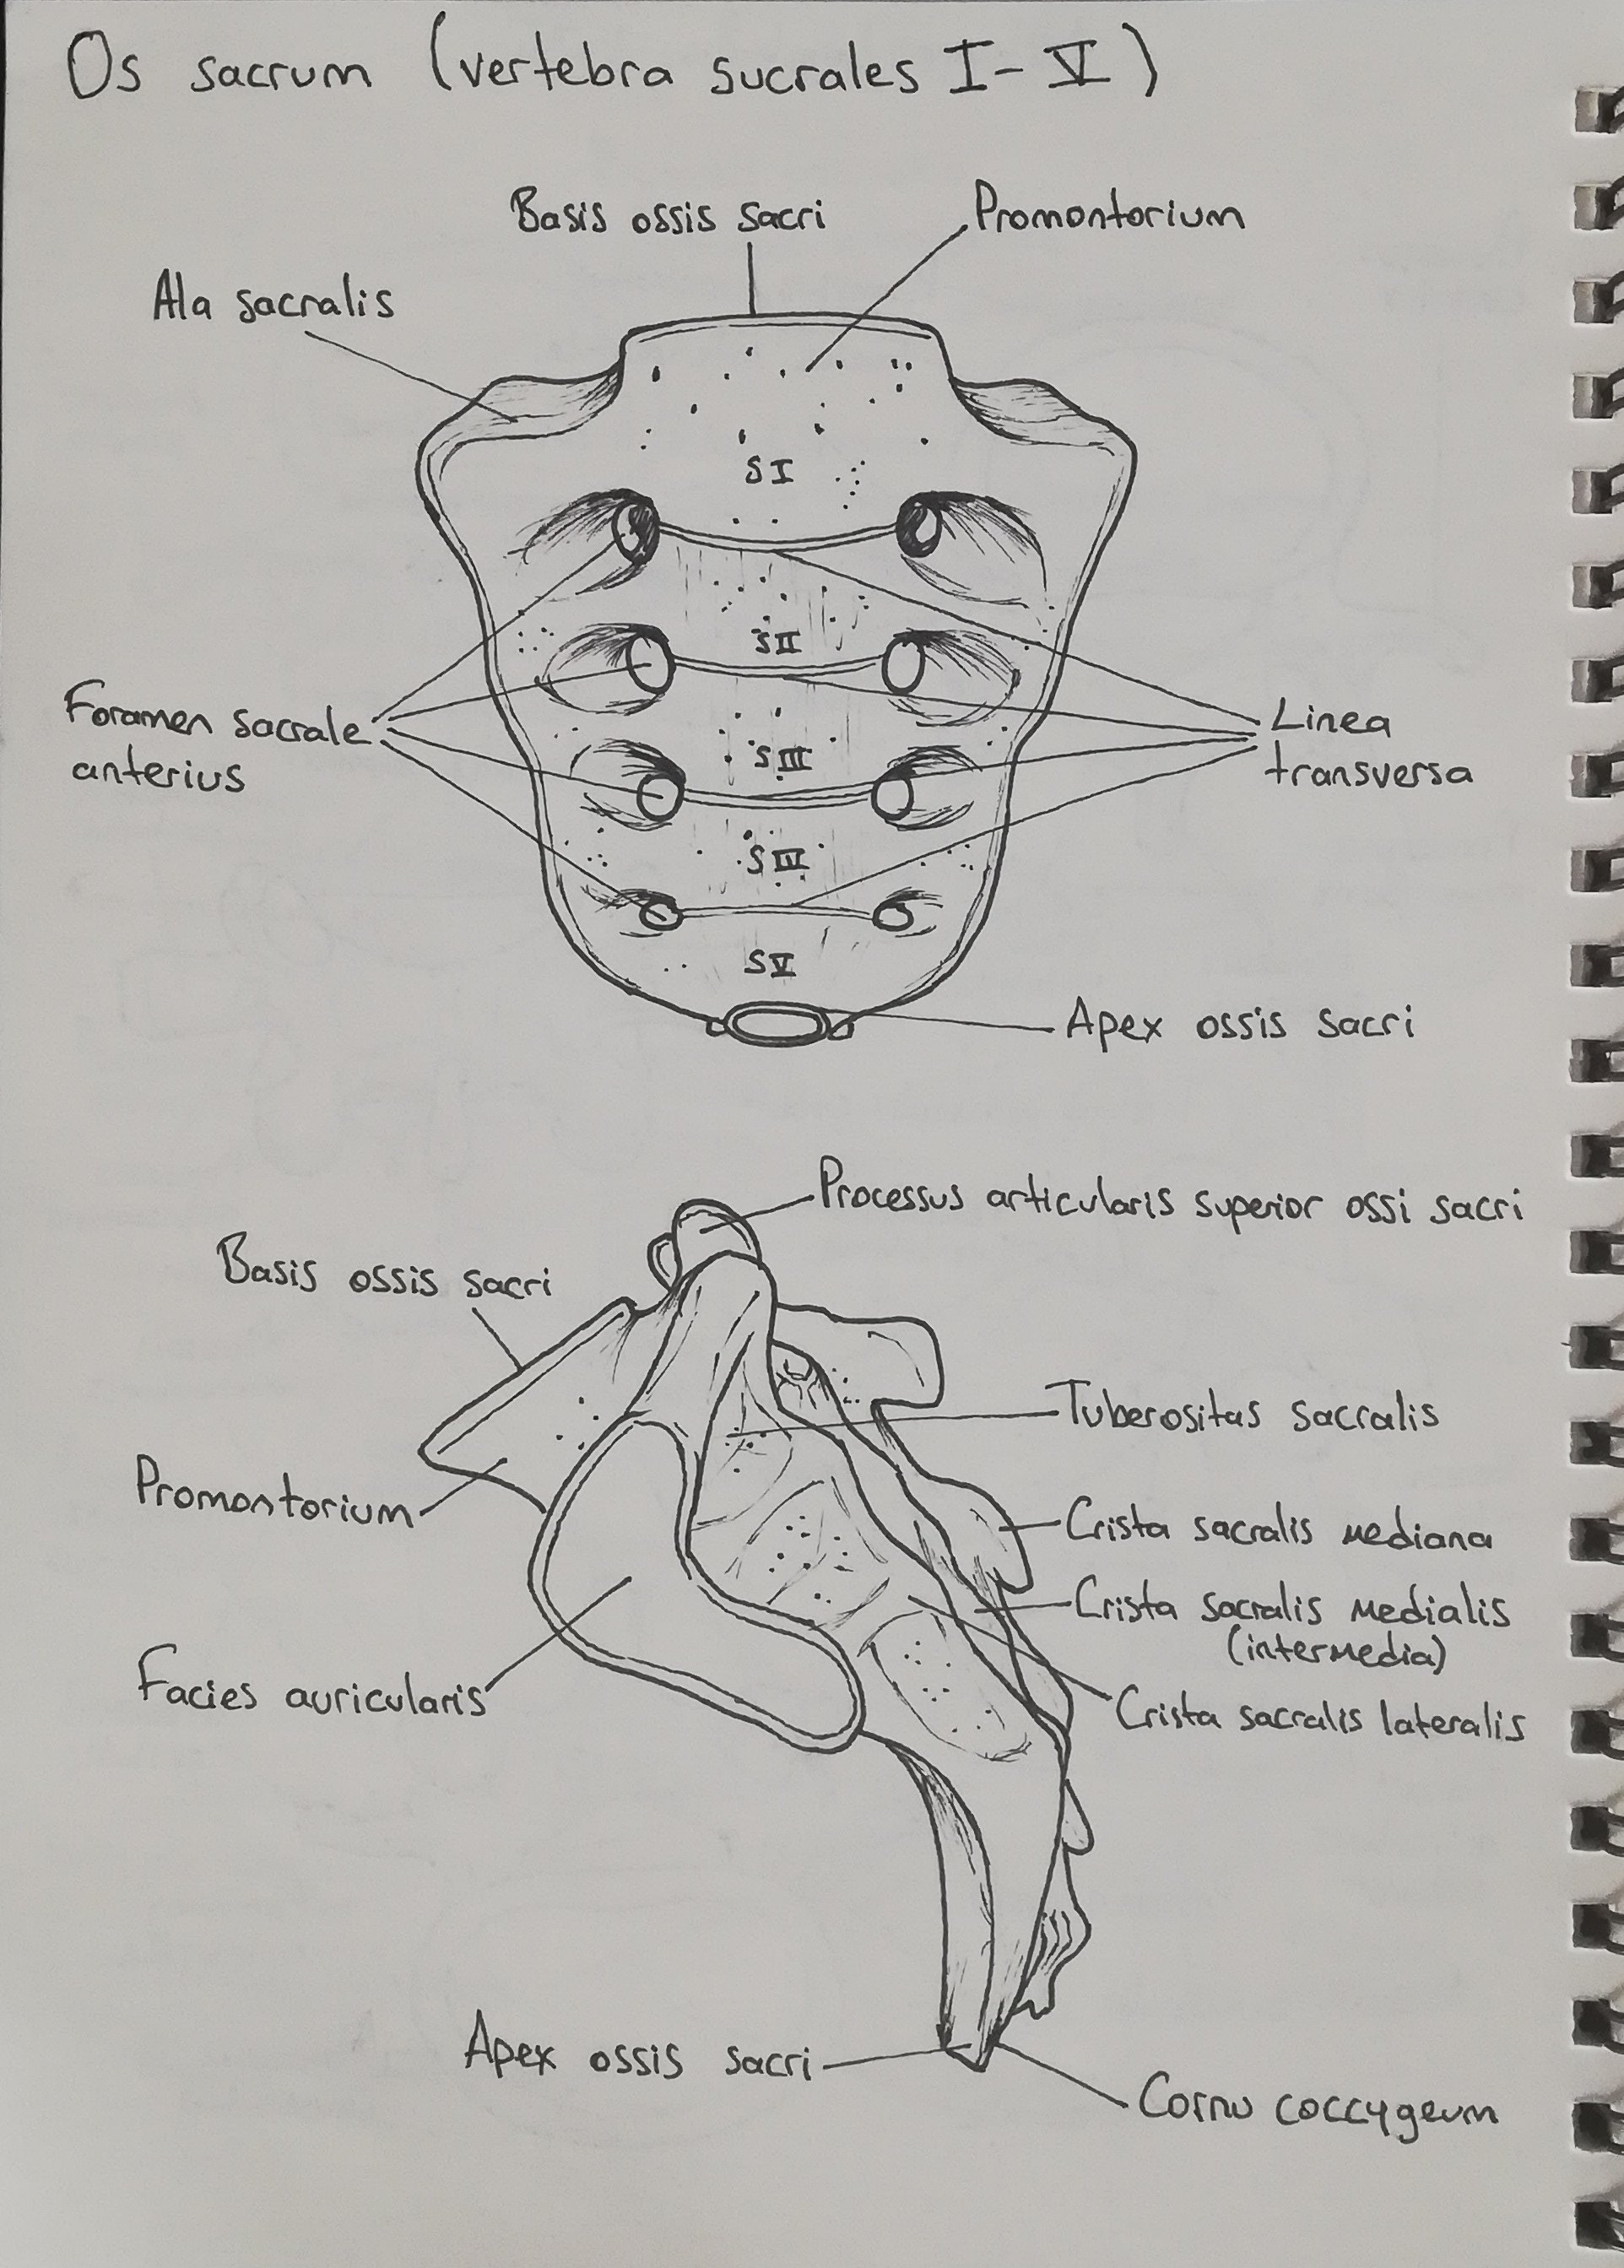 Os sacrum (vertebra sucrales I-V)
Basis ossis sacri
Promontorium
Ala sacralis
SI
SII
Foramen sacrale
anterius
Linea
transversa
SIII
SIIII
SV
Apex ossis sacri
Processus articularis superior ossi sacri
Basis ossis sacri
Tuberositas sacralis
Promontorium
Crista sacralis mediana
Crista sacralis medialis
(intermedia)
Facies auricularis
Crista sacralis lateralis
Apex ossis sacri
Cornu coccygeum